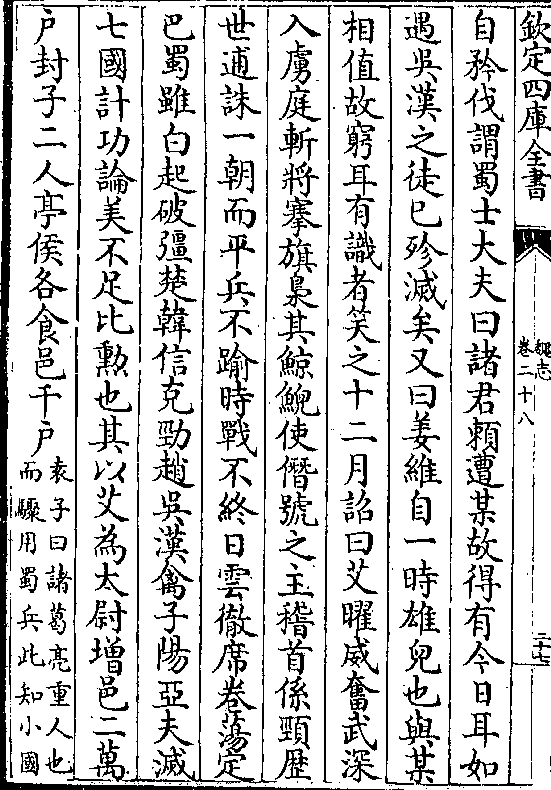 欽定四庫全書
魏志
卷二十八
二十七
自矜伐謂蜀士大夫曰諸君賴遭某故得有今日耳如
遇吳漢之徒已殄滅矣又曰姜維自一時雄兒也與某
相值故窮耳有識者笑之十二月詔曰艾曜威奮武深
入虜庭斬將搴旗梟其鯨鯢使僭號之主稽首係頸歴
世逋誅一朝而平兵不踰時戰不終日雲徹席卷蕩定
巴蜀雖白起破彊楚韓信克勁趙吳漢禽子陽亞夫滅
七國計功論美不足比勲也其以艾為太尉增邑二萬
户封子二人亭侯各食邑千户
袁子曰諸葛亮重人也
而驟用蜀兵此知小國